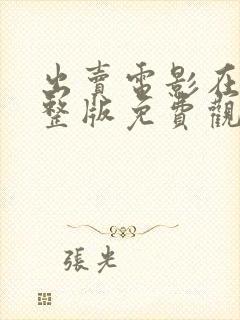 出賣電影在
整版免費觀
張光